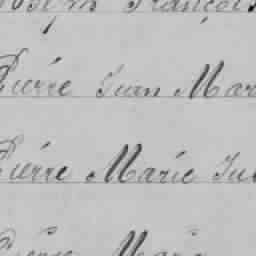 Joseph François
Pierre Jean Mar
Pierre Marie Ju
Pierre Marie